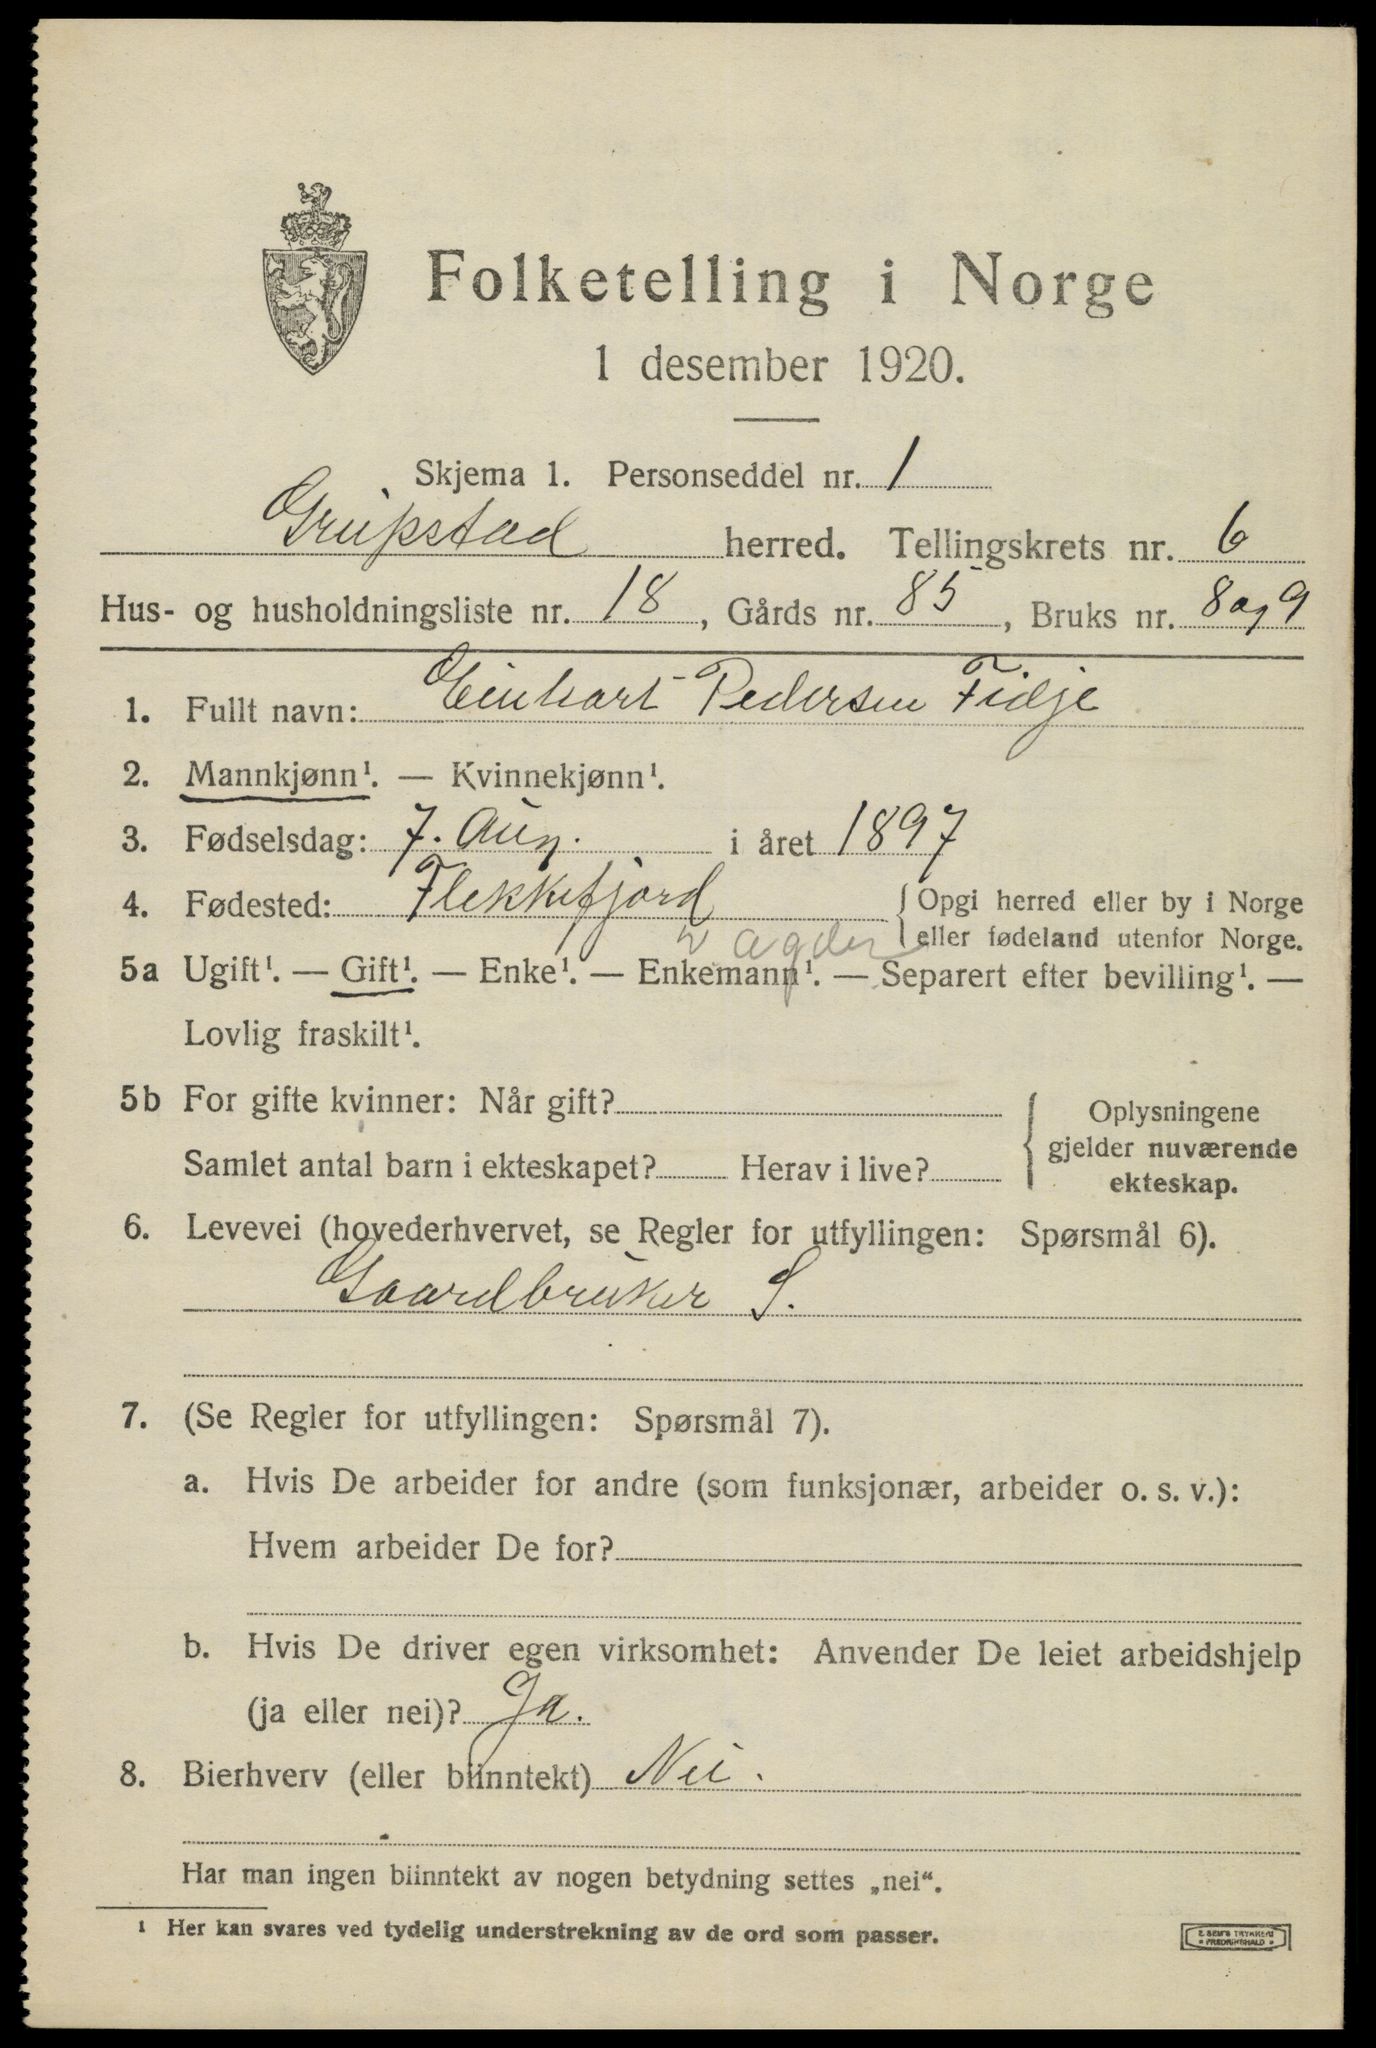 Folketelling i Norge
1 desember 1920.
Skjema 1. Personseddel nr. 1
Gripstad herred. Tellingskrets nr. 6
Hus- og husholdningsliste nr. 18, Gårds nr. 85, Bruks nr. 8 og 9
1. Fullt navn: Einhart Pedersen Fidje
2. Mannkjønn¹. — Kvinnekjønn¹.
3. Fødselsdag: 7. Aug. i året 1897
4. Fødested: Flekkefjord { Opgi herred eller by i Norge
eller fødeland utenfor Norge.
v agder
5a Ugift¹. — Gift¹. — Enke¹. — Enkemann¹. — Separert efter bevilling¹. —
Lovlig fraskilt¹.
5b For gifte kvinner: Når gift? { Oplysningene
gjelder nuværende
Samlet antal barn i ekteskapet? Herav i live?
ekteskap.
6. Levevei (hovederhvervet, se Regler for utfyllingen: Spørsmål 6).
Gaardbruker S.
7. (Se Regler for utfyllingen: Spørsmål 7).
a. Hvis De arbeider for andre (som funksjonær, arbeider o. s. v.):
Hvem arbeider De for?
b. Hvis De driver egen virksomhet: Anvender De leiet arbeidshjelp
(ja eller nei)? Ja.
8. Bierhverv (eller biinntekt) Nei.
Har man ingen biinntekt av nogen betydning settes „nei“.
¹ Her kan svares ved tydelig understrekning av de ord som passer.
E. SEM'S TRYKKERI
• FREDRIKSHALD •